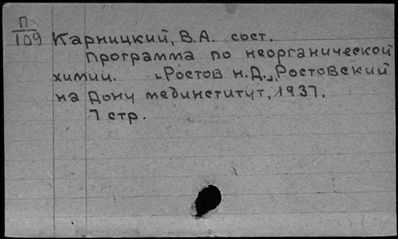 П
109
Карницкий, В.А. сост.
Программа по неорганической
химии. Ростов н.Д., Ростовский
на Дону мединститут, 1937.
7 стр.